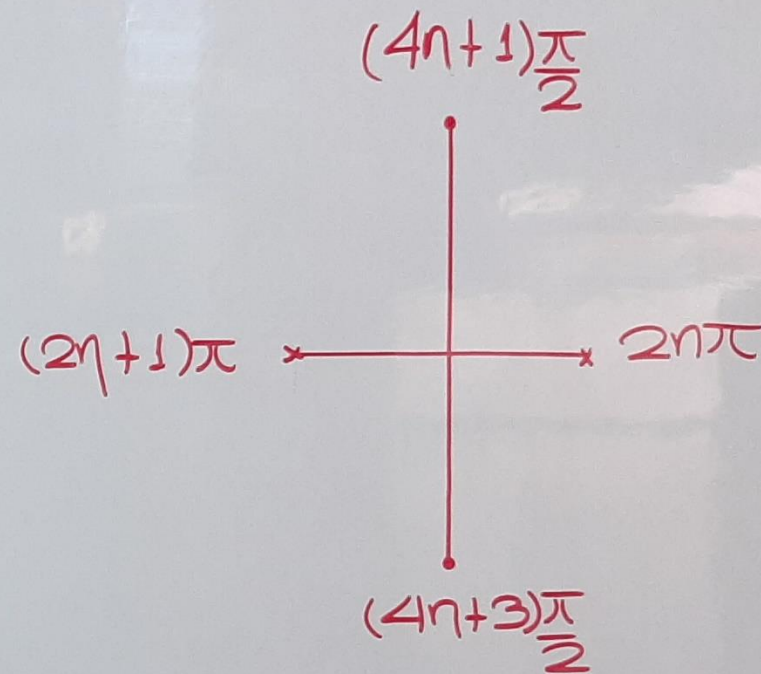 (4n+1)π/2
(2n+1)π
2nπ
(4n+3)π/2